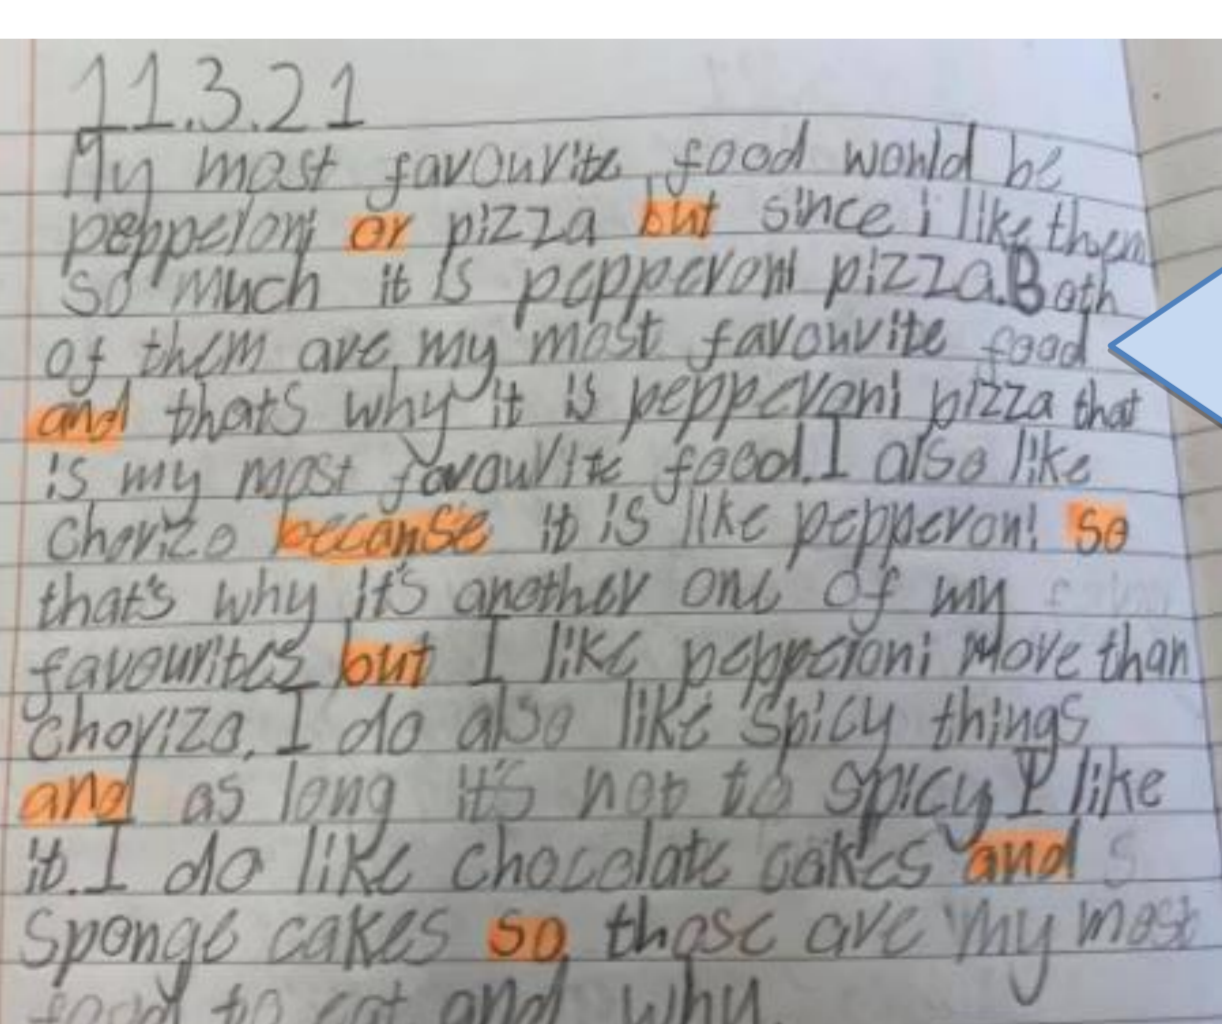 11.3.21
My most favourite food would be
pepperoni or pizza but since i like them
so much it is pepperoni pizza.Both
of them are my most favourite food
and thats why it is pepperoni pizza that
is my most favourite food.I also like
chorizo because it is like pepperoni so
that's why it's another one of my
favourites but I like pepperoni more than
chorizo. I do also like spicy things
and as long it's not to spicy I like
it.I do like chocolate cakes and s
sponge cakes so those are my most
food to eat and why